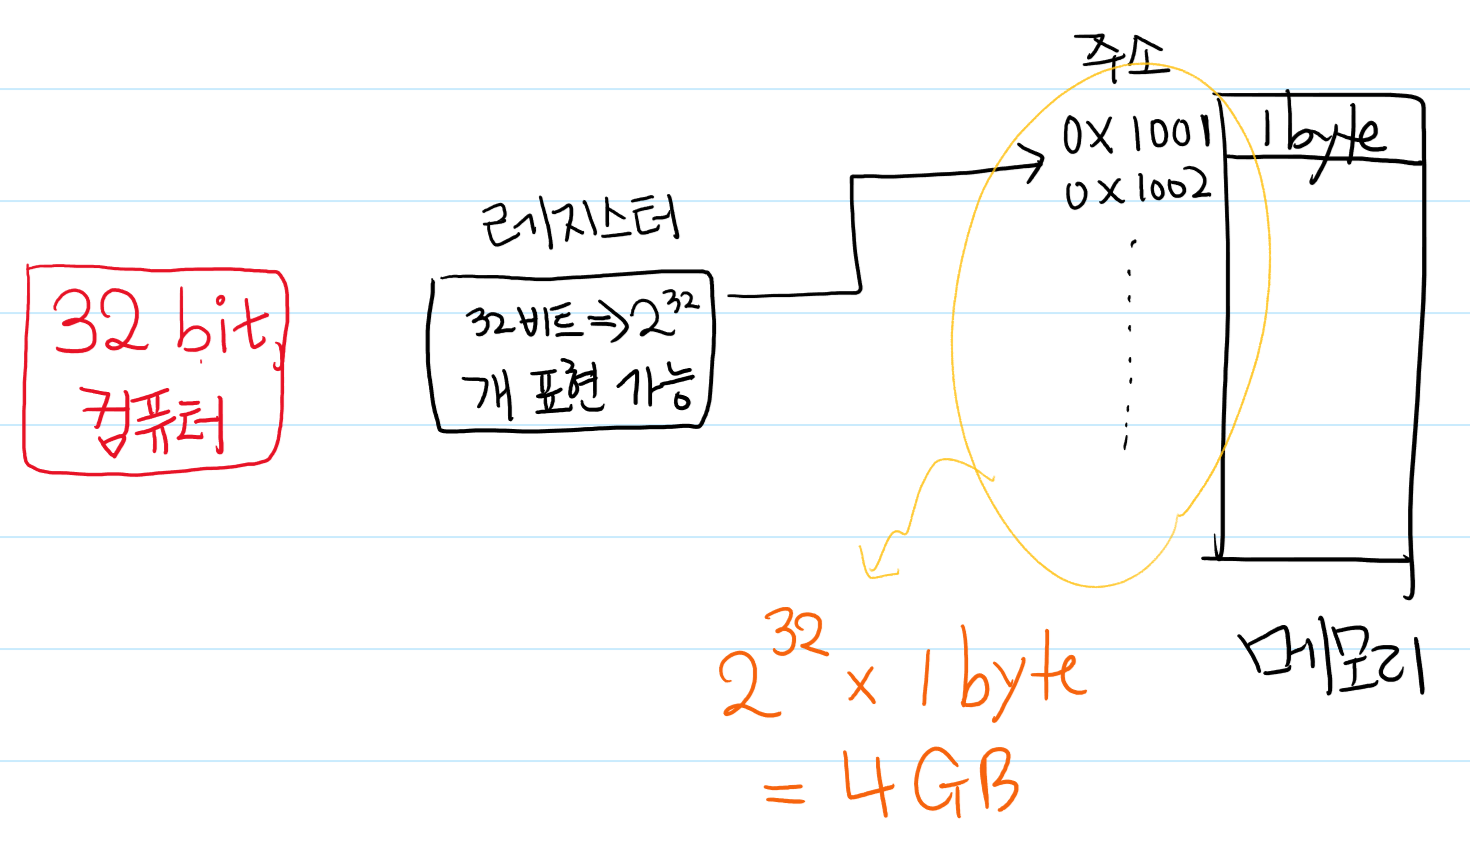 32 bit
컴퓨터
레지스터
32비트 => 2^32
개 표현 가능
주소
0x1001
0x1002
1 byte
메모리
2^32 x 1 byte
= 4GB